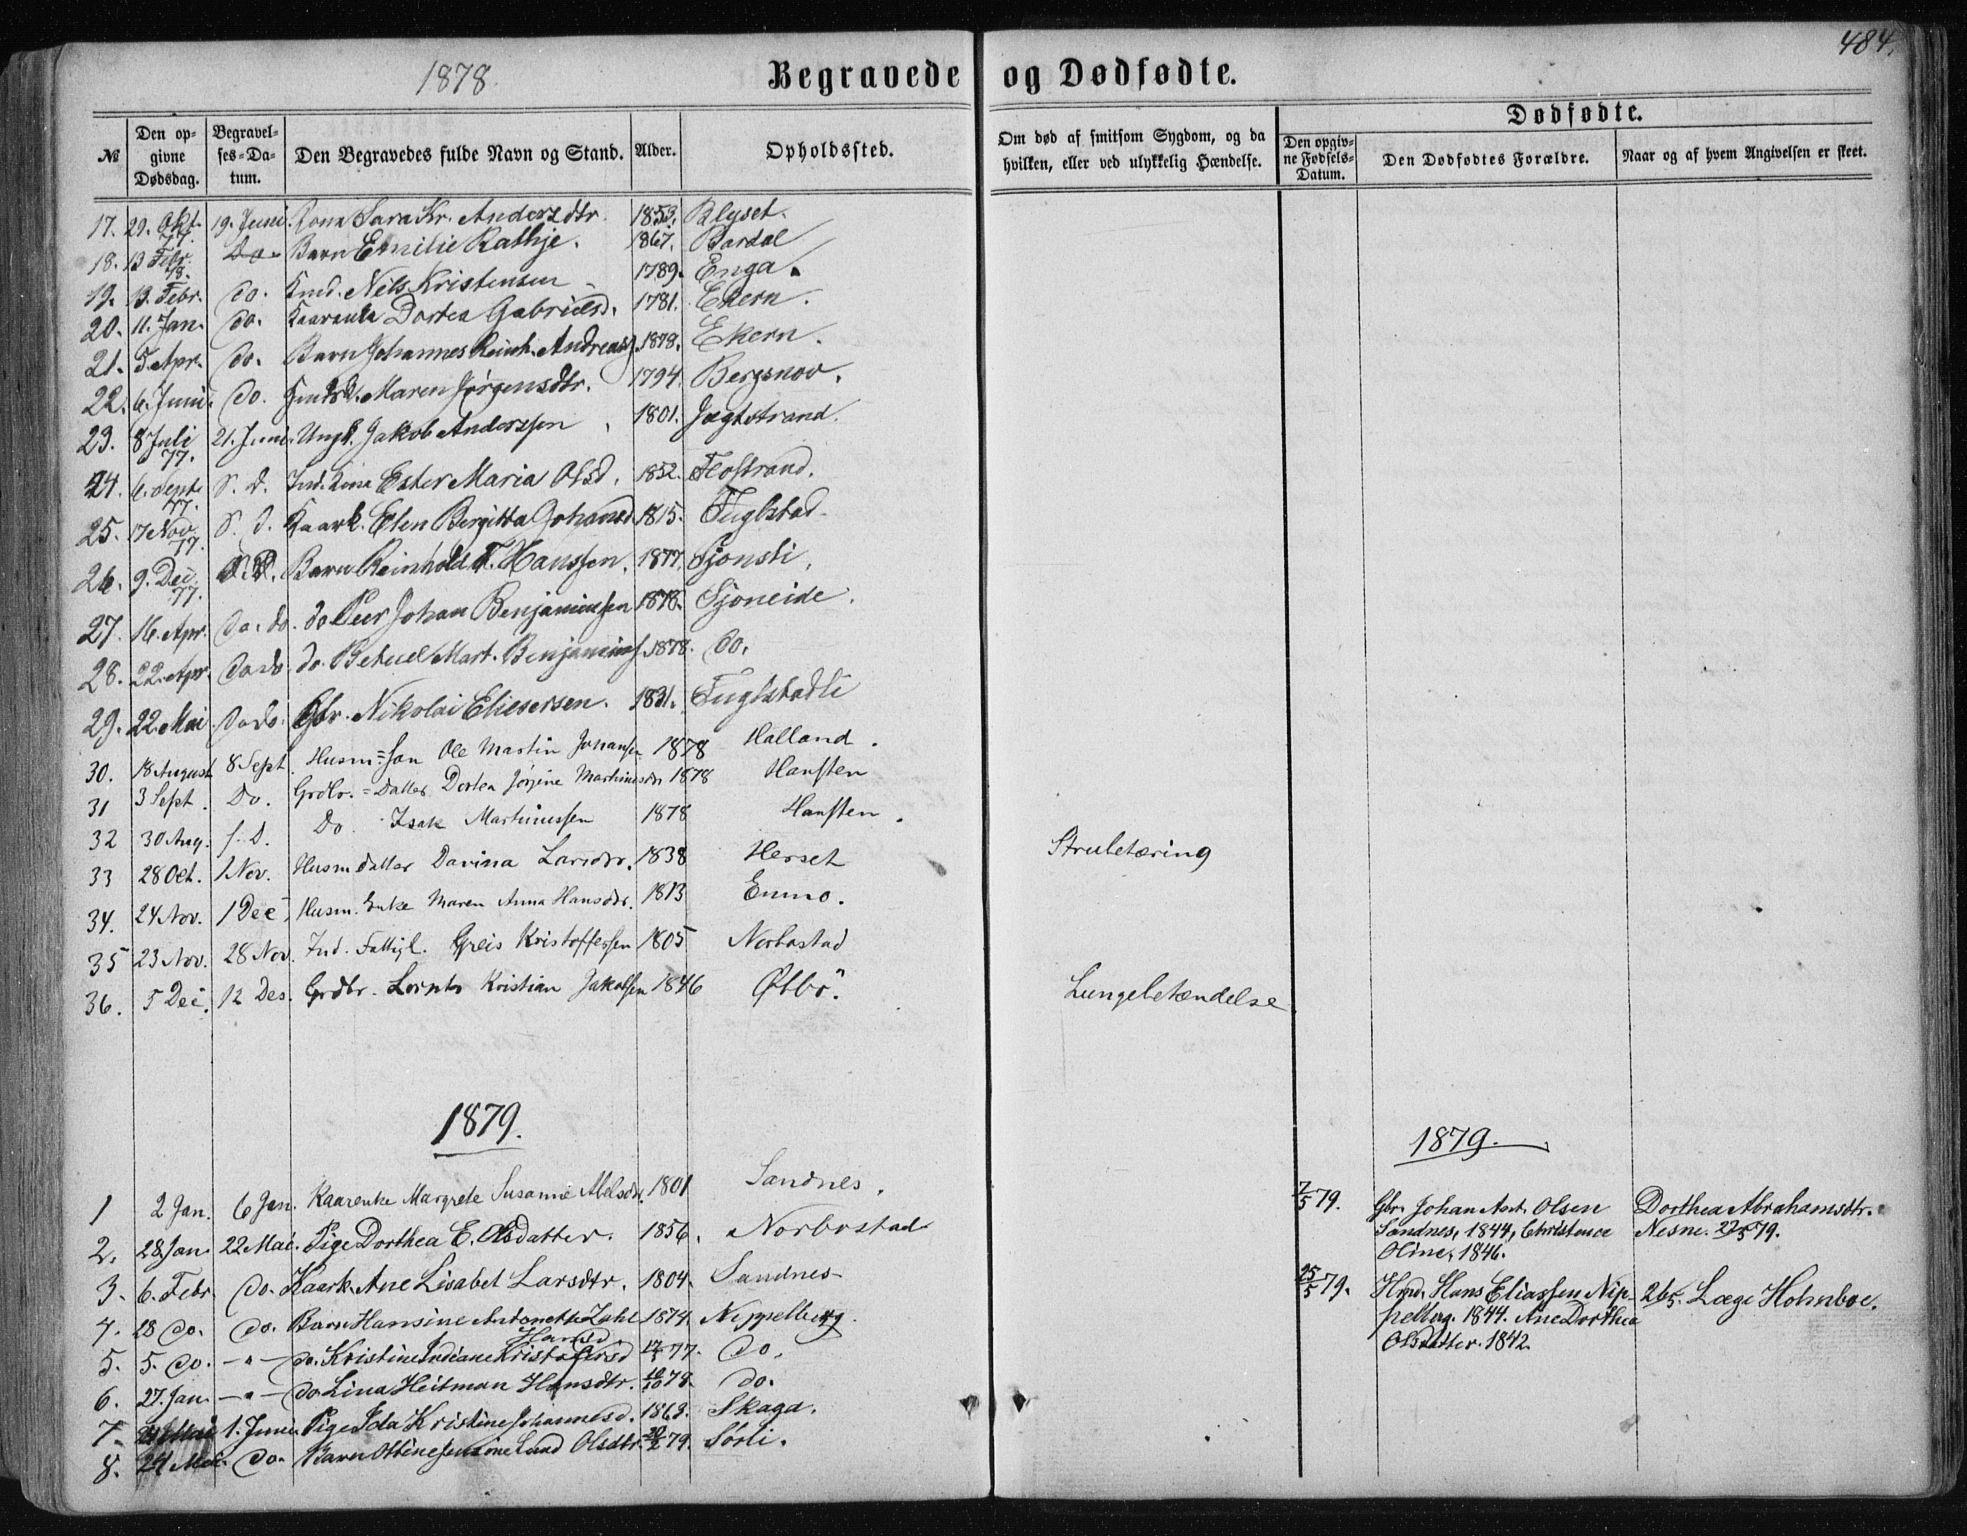 484.
1878.
Begravede og Dødfødte.
Dødfødte.
№
Den opgivne Dødsdag.
Begravelses-Datum.
Den Begravedes fulde Navn og Stand.
Alder.
Opholdssted.
Om død af smitsom Sygdom, og da hvilken, eller ved ulykkelig Hændelse.
Den opgivne Fødsels-Datum.
Den Dødfødtes Forældre.
Naar og af hvem Angivelsen er skeet.
17. 29. Okt. 77. 19. Juni. Kona Sara Kr. Andersdtr. 1853. Blyset.
18. 13 Febr. 78. Do. Barn Emilie Rathje. 1867. Bardal
19. 13. Febr. do. Nels Kristensen 1789. Enga.
20. 11. Jan. do. Dortea Gabrielsd. 1781. Ekern.
21. 5 Apr. do. Barn Johannes Reinh. Andreass. 1878. Ekern.
22. 6. Juni. do. Maren Jørgensdtr. 1794. Bergsnov.
23. 8 Juli 77. 21. Juni. Ungk. Jakob Anderssen 1801. Jægtstrand.
24. 6. Sept. 77. S. D. Ester Maria Olsd. 1852. Flostrand.
25. 17 Nov. 77. S. d. Kaark. Elen Bergitta Johansd. 1815. Fuglstad.
26. 9. Dec. 77. Barn Reinholdt F. Hanssen. 1877. Sjonsli.
27. 16. Apr. do. do. do Peer Johan Benjaminsen 1878. Sjoneide.
28. 22. Apr. do do. do. Betuel Mart. Benjamins. 1878. do.
29. 22. Mai do do. Gbr. Nikolai Eliesersen. 1831. Fuglstadli
30. 18 August 8 Sept. Husm=Søn Ole Martin Johansen 1878 Halland.
31 3 Sept. Do. Grdbr.=Datter Dortea Jørgine Martinusdr 1878 Hansten
32 30 Aug. s. D. Do. Isak Martinussen 1878 Hansten.
33 28 Oct. 1 Nov. Husm datter Davina Larsdr. 1838 Herset Strubetæring
34. 24 Nov. 1 Dec. Husm. Enke Maren Anna Hansdr. 1813 Enmo.
35 23 Nov. 28 Nov. Ind. Fattigl. Greis Kristoffersen 1805 Norbostad
36. 5 Dec. 12 Des. Grdbr. Lornts Kristian Jakobsen 1846 Øibø. Lungebetændelse
1879.
1 2 Jan. 6 Jan. Kaarenke Margrete Susanne Abelsdr. 1801 Sandnes.
2. 28 Jan. 22 Mai. Pige Dorthea E. Olsdatter. 1856. Norbostad
3. 6. Febr. do. Kaark. Ane Lisabet Larsdtr. 1804. Sandnes
4. 28 do. do. Barn Hansine Antonette Zahl 1874. Neppelberg.
Hansd.
5. 5. do. — " — do. Kristine Indiane Kristofersd 77. do.
6. 27. Jan. — " — do Lina Heitman Hansdtr. 78. do.
7. Mai 1. Juni Pige Ida Kristine Johannesd. 1863. Skaga.
8. 24 Mai. do. Barn Ottine Jensine Lund Olsdtr. 79. Sørli.
1879.
7/5 79. Gbr. Johan Ant. Olsen Dorthea Abrahamsdtr.
Sandnes, 1844, Christence Nesne. 22/5 79.
Oline, 1846.
25/5 79. Hmd. Hans Eliassen Nip- 26/5. Læge Holmboe.
pelberg. 1844. Ane Dorthea
Olsdatter. 1842.